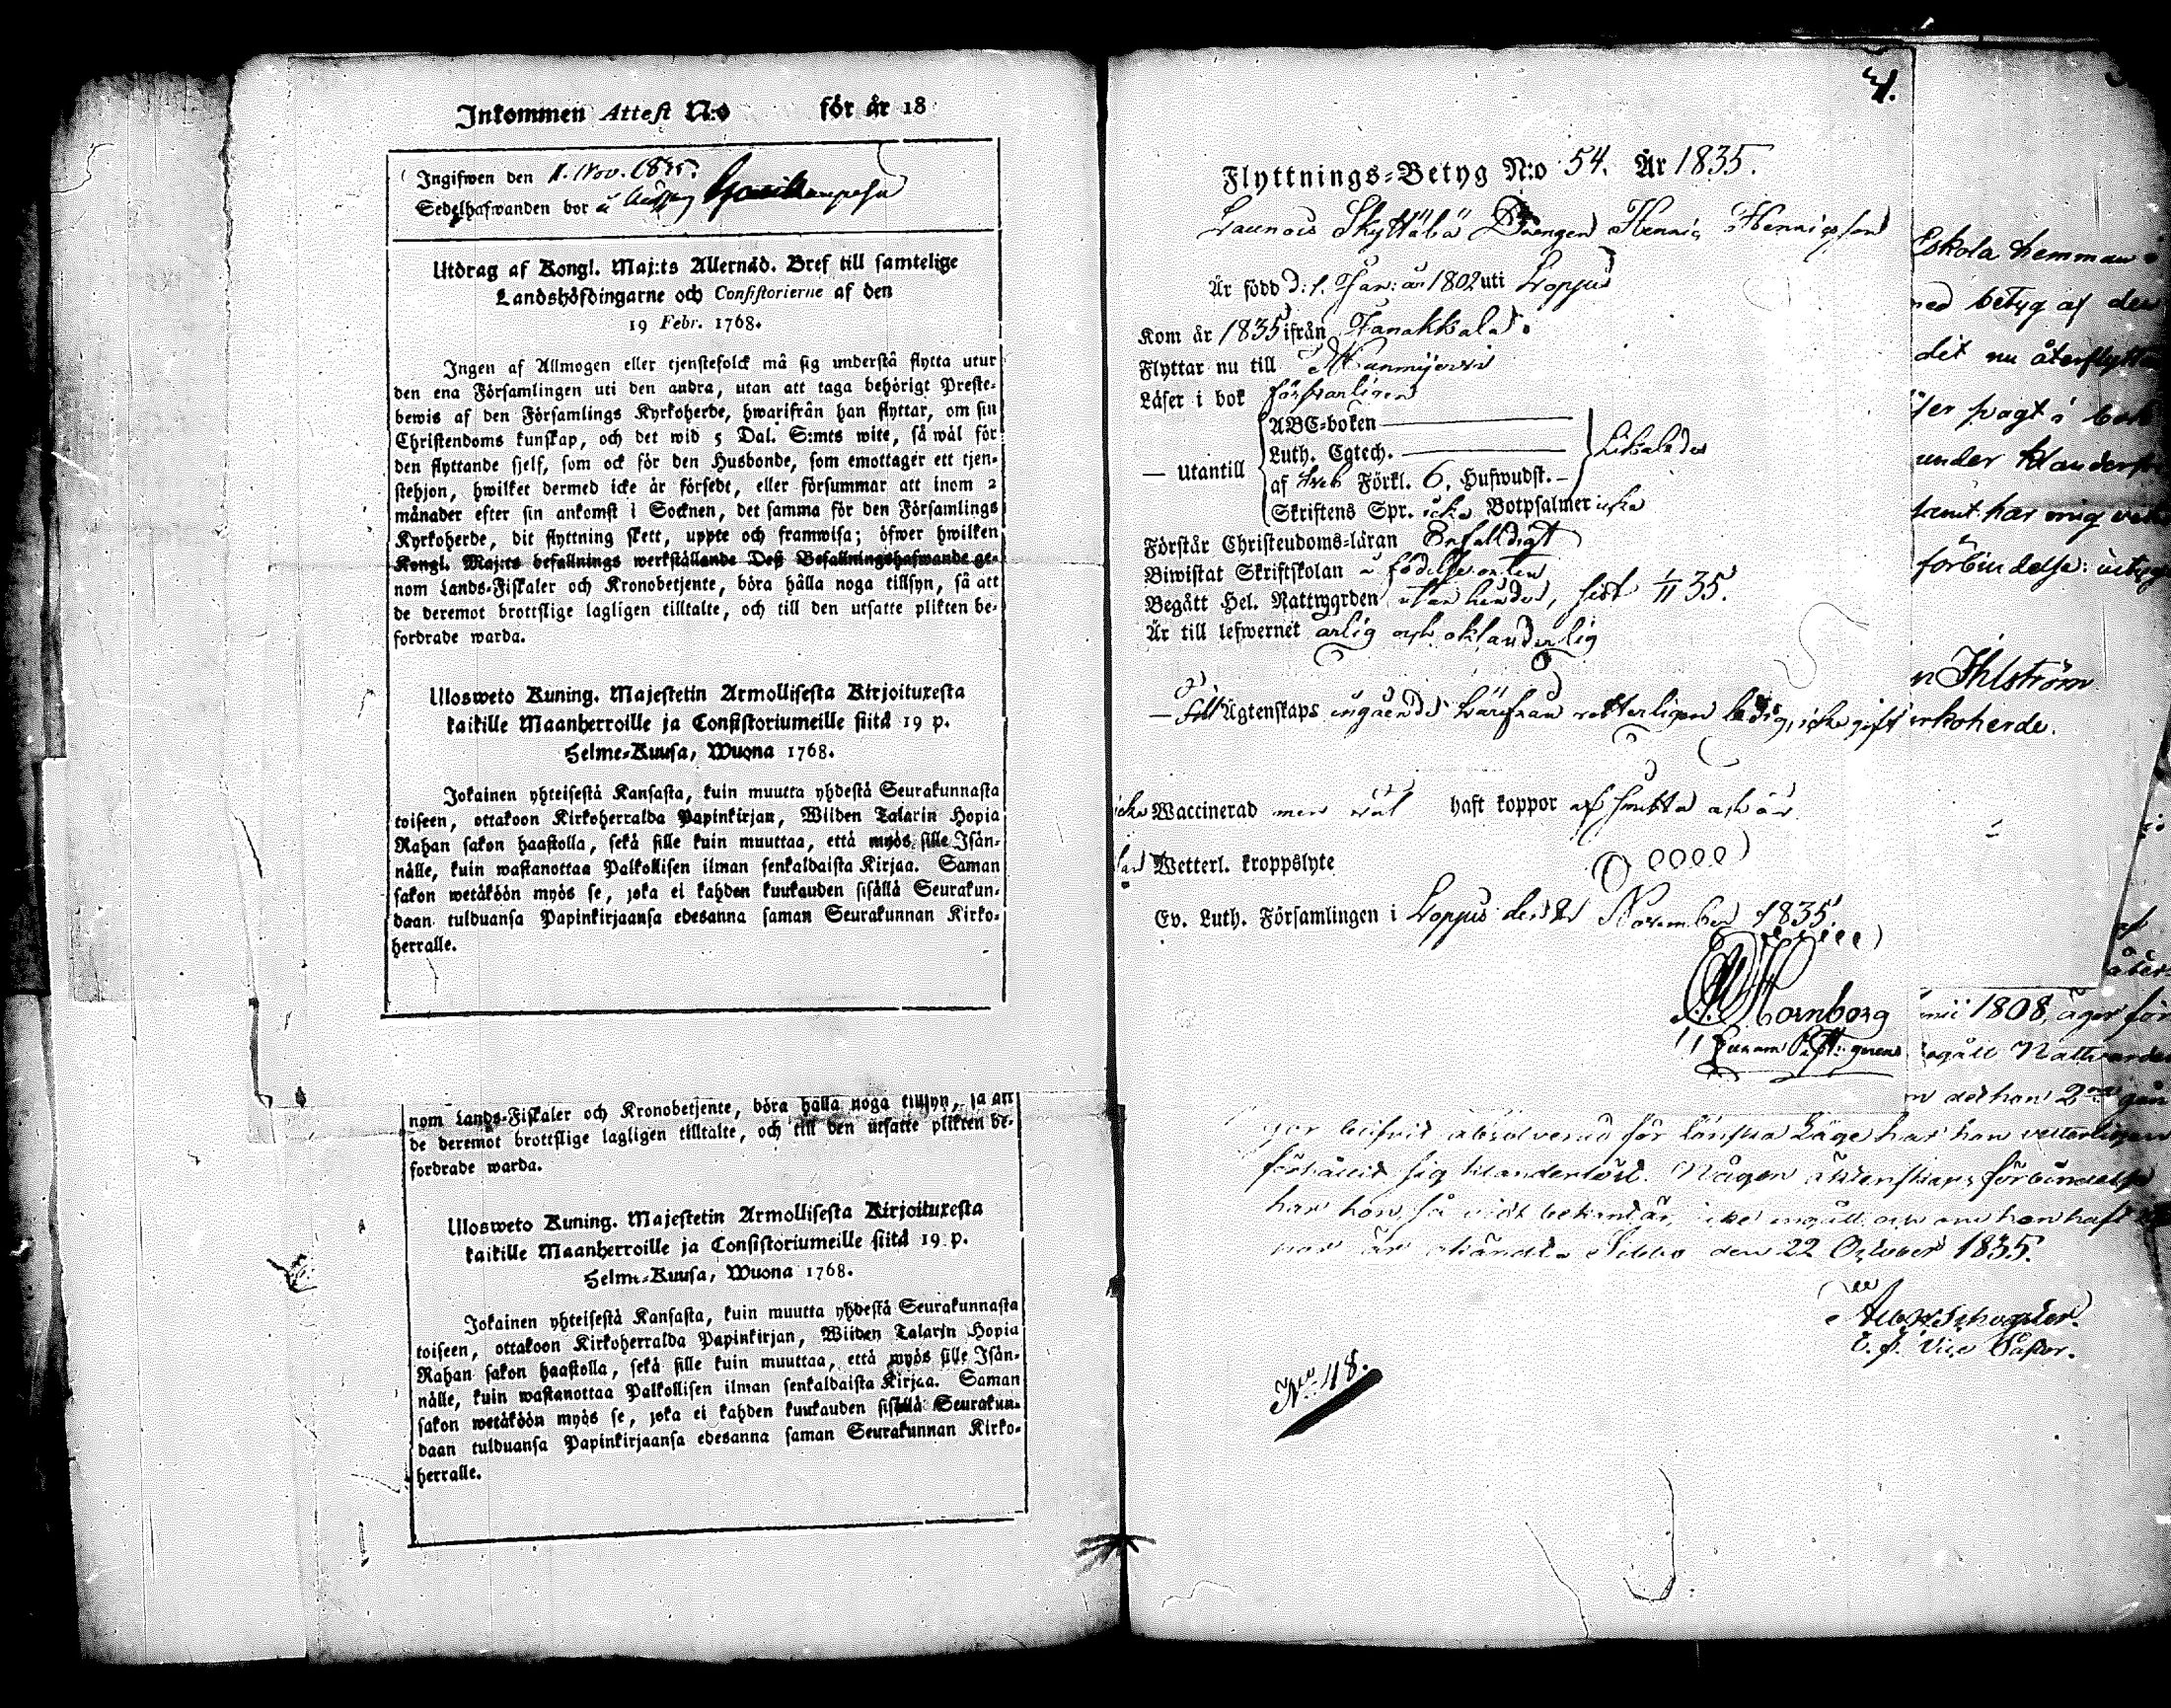 Inkommen Attest N:o för år 18
Ingifwen den 11. Nov. 1835.
Sedelhafwanden bor
Utdrag af Kongl. Maj:ts Allernåd. Bref till samtelige
Landshöfdingarne och Consistorierne af den
19 Febr. 1768.
Ingen af Allmogen eller tjenstefolck må sig understå flytta utur
den ena Församlingen uti den andra, utan att taga behörigt Preste-
bewis af den Församlings Kyrkoherde, hwarifrån han flyttar, om sin
Christendoms kunskap, och det wid 5 Dal. S:mts wite, så wäl för
den flyttande sjelf, som ock för den Husbonde, som emottager ett tjen-
stehjon, hwilket dermed icke är försedt, eller försummar att inom 2
månader efter sin ankomst i Socknen, det samma för den Församlings
Kyrkoherde, dit flyttning skett, uppte och framwisa; öfwer hwilken
Kongl. Maj:ts befallnings werkställande Deß Befallningshafwande ge-
nom Lands-Fiskaler och Kronobetjente, böra hålla noga tillsyn, så att
de deremot brottslige lagligen tilltalte, och till den utsatte plikten be-
fordrade warda.
Ulosweto Kuning. Majestetin Armollisesta Kirjoituxesta
kaikille Maanherroille ja Consistoriumeille siitä 19 p.
Helme-Kuusa, Wuona 1768.
Jokainen yhteisestä Kansasta, kuin muutta yhdestä Seurakunnasta
toiseen, ottakoon Kirkoherralda Papinkirjan, Wiiden Talarin Hopia
Rahan sakon haastolla, sekä sille kuin muuttaa, että myös sille Isän-
nälle, kuin wastanottaa Palkollisen ilman senkaldaista Kirjaa. Saman
sakon wetäköön myös se, joka ei kahden kuukauden sisällä Seurakun-
daan tulduansa Papinkirjaansa edesanna saman Seurakunnan Kirko-
herralle.
nom Lands-Fiskaler och Kronobetjente, böra hålla noga tillsyn, så att
de deremot brottslige lagligen tilltalte, och till den utsatte plikten be-
fordrade warda.
Ulosweto Kuning. Majestetin Armollisesta Kirjoituxesta
kaikille Maanherroille ja Consistoriumeille siitä 19 p.
Helme-Kuusa, Wuona 1768.
Jokainen yhteisestä Kansasta, kuin muutta yhdestä Seurakunnasta
toiseen, ottakoon Kirkoherralda Papinkirjan, Wiiden Talarin Hopia
Rahan sakon haastolla, sekä sille kuin muuttaa, että myös sille Isän-
nälle, kuin wastanottaa Palkollisen ilman senkaldaista Kirjaa. Saman
sakon wetäköön myös se, joka ei kahden kuukauden sisällä Seurakun-
daan tulduansa Papinkirjaansa edesanna saman Seurakunnan Kirko-
herralle.
Flyttnings-Betyg N:o 54. År 1835.
Launois Skyttälä Drengen Henric Henricsson
Är född d: 1. Jan: år 1802 uti Loppis
Kom år 1835 ifrån Janakkala.
Flyttar nu till Nurmijervi
Läser i bok försvarligen
ABC-boken
Luth. Catech.
— Utantill af Sveb Förkl. 6. Hufwudst. — Likaledes
Skriftens Spr. icke Botpsalmer icke
Förstår Christendoms-läran Enfalldigt
Biwistat Skriftskolan å födelse orten
Begått Hel. Nattwarden sist 1/11 35.
Är till lefwernet ärlig och oklanderlig
— Till Ägtenskaps ingående härifrån vetterligen ledig, icke gift
icke Waccinerad men väl haft koppor
utan Wetterl. kroppslyte
Ev. Luth. Församlingen i Loppis den 2 November 1835.
Hornborg
Eskola hemman
med betyg af den
dit nu återflytta
under klander
samt har mig
förbindelse: betyg
Ihlström
Kyrkoherde.
åter-
1808, äger för
begått Nattvarden
det hon 2
absolverad för lönska läge har hon vetterligen
förhållit sig klanderlöst. Någon äktenskaps förbindelse
har hon, så vidt bekant är, icke ingått, och om hon haft
Sibbo den 22 October 1835.
V. Pastor.
No 48.